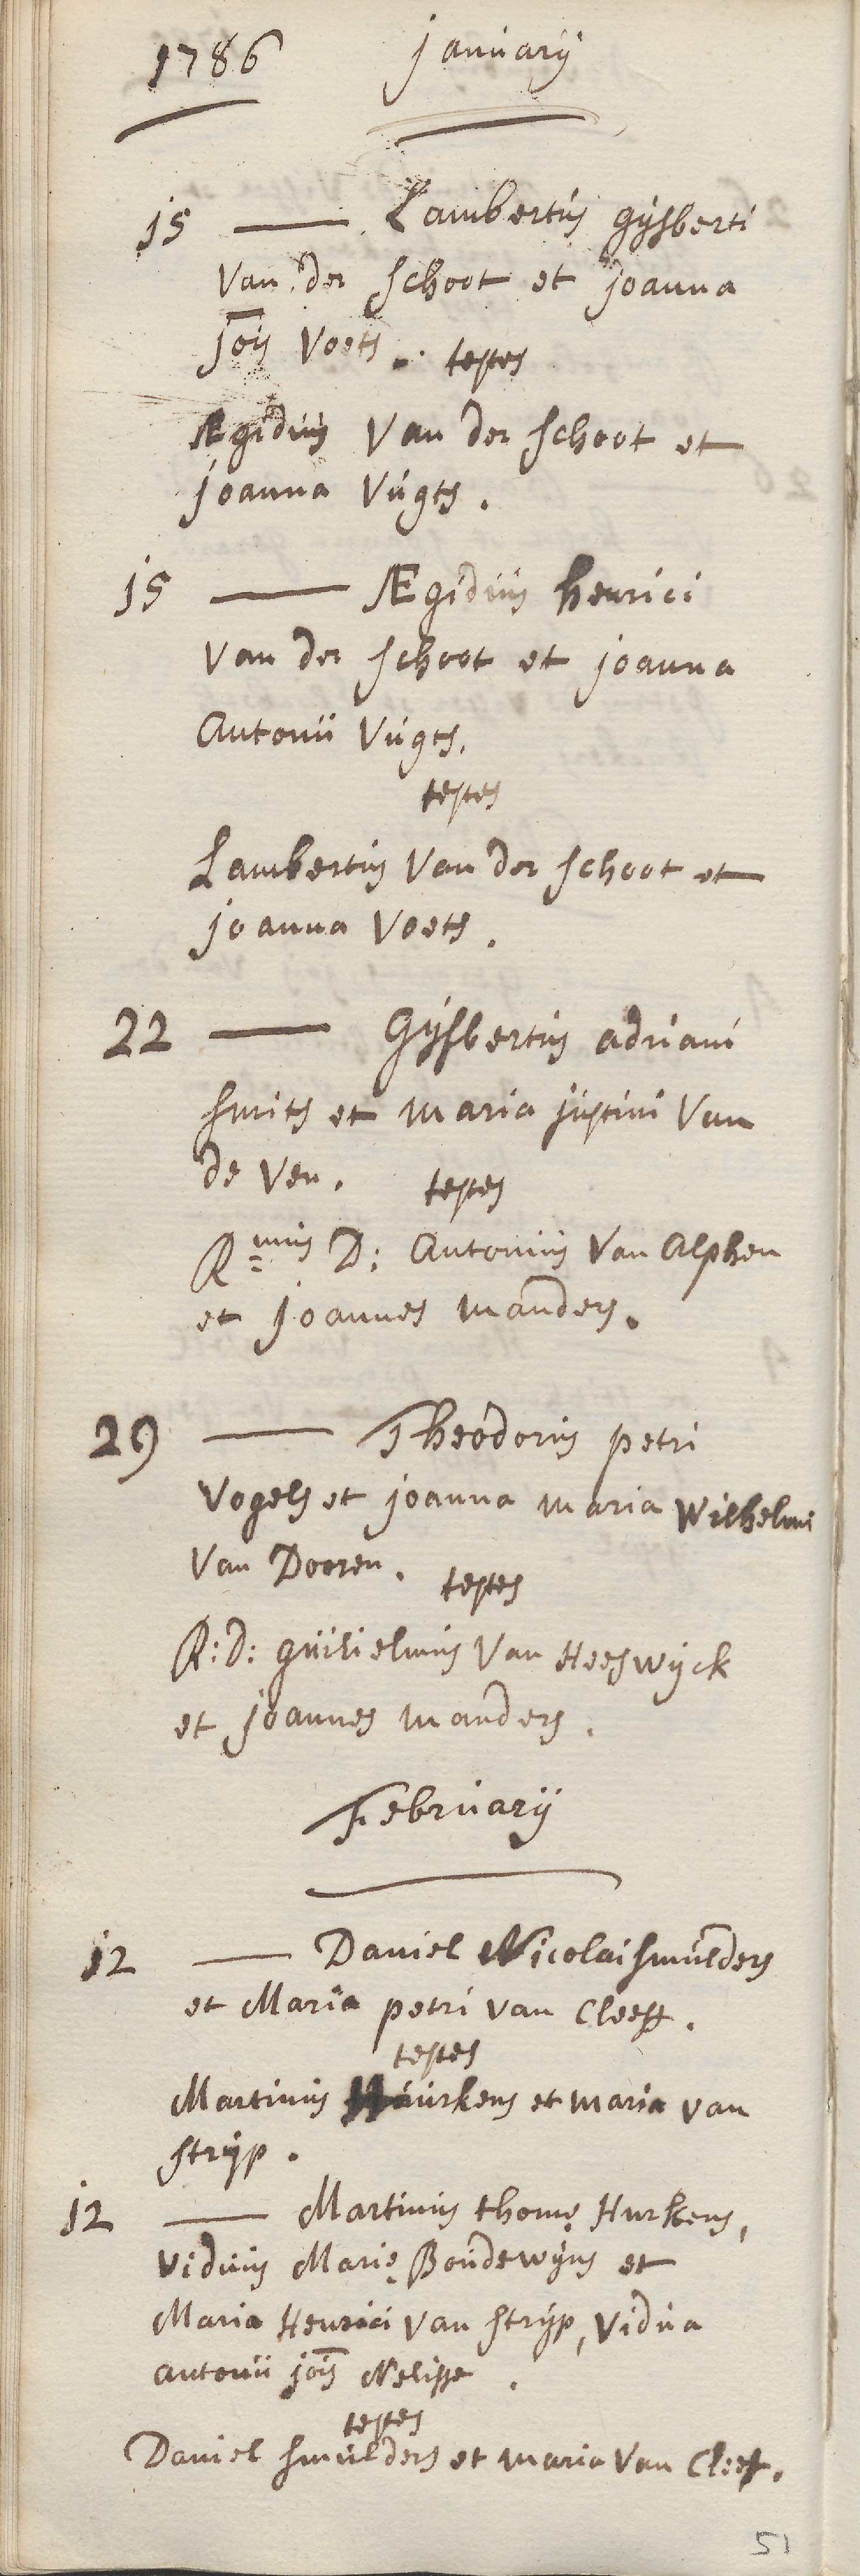 1786 januarij
15 — Lambertus Gijsberti
Van der Schoot et joanna
jois Voets. testes
Ægidius Van der Schoot et
joanna Vugts.
15 — Ægidius henrici
Van der Schoot et joanna
Antonii Vugts.
testes
Lambertus Van der Schoot et
joanna Voets.
22 — Gijsbertus adriani
Smits et maria justini Van
de Ven. testes
R=mus D: Antonius Van Alphen
et joannes manders.
29 — Theodorus petri
Vogels et joanna maria Wilhelmi
Van Dooren. testes
R:D: guilielmus Van Heeswijck
et joannes manders.
Februarij
12 — Daniel Nicolai Smulders
et Maria petri van Cleef.
testes
Martinus Huurkens et maria van
Strijp.
12 — Martinus thomę Hurkens,
Viduus Marię Boudewijns et
Maria Henrici Van Strijp, Vidua
antonii jois Nelisse.
testes
Daniel Smulders et maria Van Cleef.
51